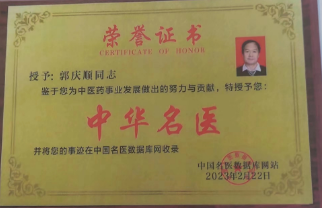 荣誉证书
CERTIFICATE OF HONOR
授予：郭庆顺同志
鉴于您为中医药事业发展做出的努力与贡献，特授予您：
中华名医
并将您的事迹在中国名医数据库网收录
中国名医数据库网站
2023年2月22日